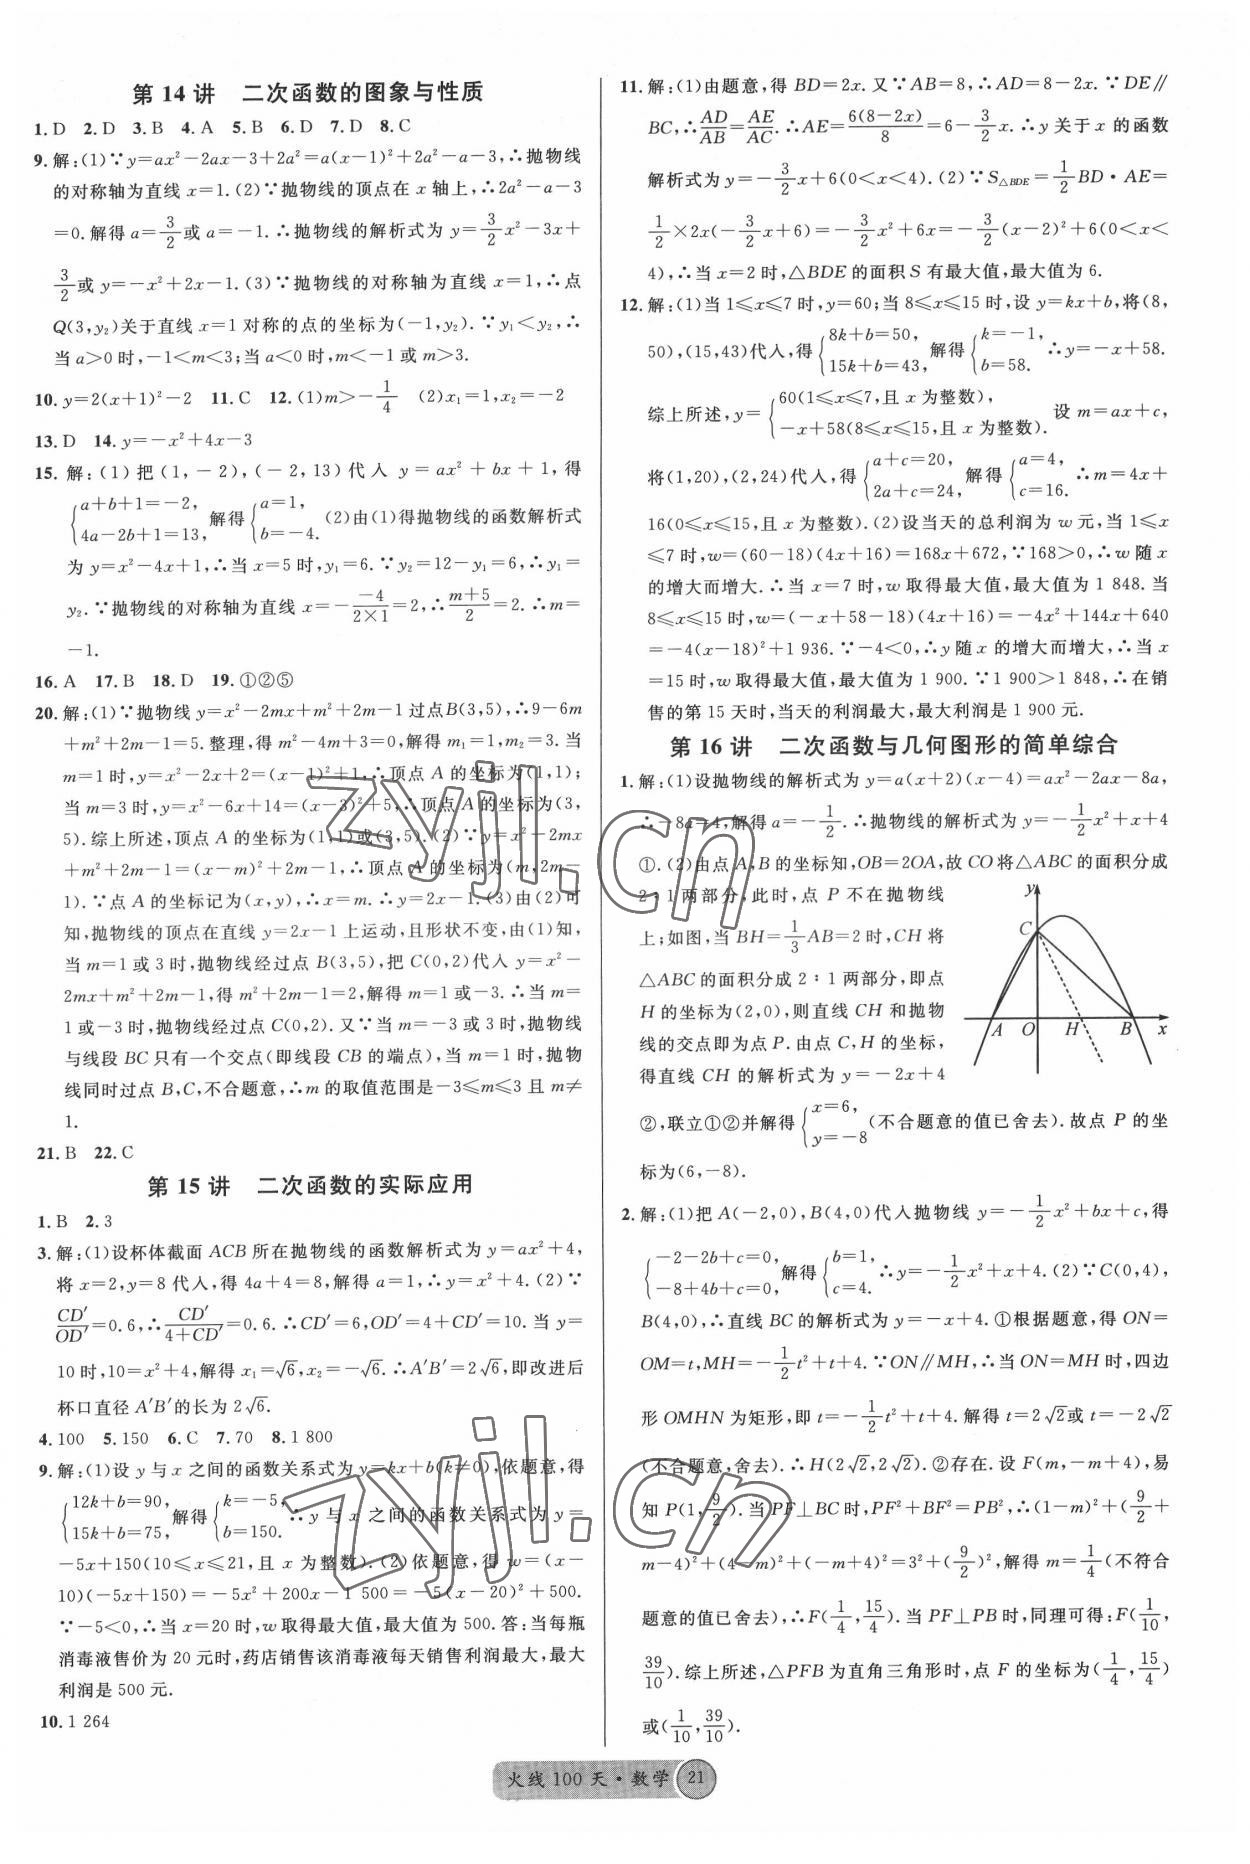 第 14 讲　二次函数的图象与性质
1. D　2. D　3. B　4. A　5. B　6. D　7. D　8. C
9. 解:(1)∵y=ax²-2ax-3+2a²=a(x-1)²+2a²-a-3,∴抛物线
的对称轴为直线 x=1.(2)∵抛物线的顶点在 x 轴上,∴2a²-a-3
=0.解得 a=3/2或 a=-1.∴抛物线的解析式为 y=3/2x²-3x+
3/2或 y=-x²+2x-1.(3)∵抛物线的对称轴为直线 x=1,∴点
Q(3,y₂)关于直线 x=1 对称的点的坐标为(-1,y₂).∵y₁<y₂,∴
当 a>0 时,-1<m<3;当 a<0 时,m<-1 或 m>3.
10. y=2(x+1)²-2　11. C　12. (1)m>-1/4　(2)x₁=1,x₂=-2
13. D　14. y=-x²+4x-3
15. 解:(1)把(1,-2),(-2,13)代入 y=ax²+bx+1,得
{a+b+1=-2, 4a-2b+1=13, 解得{a=1, b=-4. (2)由(1)得抛物线的函数解析式
为 y=x²-4x+1,∴当 x=5 时,y₁=6.∵y₂=12-y₁=6,∴y₁=
y₂.∵抛物线的对称轴为直线 x=-(-4)/(2×1)=2,∴(m+5)/2=2.∴m=
-1.
16. A　17. B　18. D　19. ①②⑤
20. 解:(1)∵抛物线 y=x²-2mx+m²+2m-1 过点B(3,5),∴9-6m
+m²+2m-1=5.整理,得 m²-4m+3=0,解得 m₁=1,m₂=3.当
m=1 时,y=x²-2x+2=(x-1)²+1,∴顶点 A 的坐标为(1,1);
当 m=3 时,y=x²-6x+14=(x-3)²+5,∴顶点 A 的坐标为(3,
5).综上所述,顶点 A 的坐标为(1,1)或(3,5).(2)∵y=x²-2mx
+m²+2m-1=(x-m)²+2m-1,∴顶点 A 的坐标为(m,2m-
1).∵点 A 的坐标记为(x,y),∴x=m.∴y=2x-1.(3)由(2)可
知,抛物线的顶点在直线 y=2x-1 上运动,且形状不变,由(1)知,
当 m=1 或 3 时,抛物线经过点 B(3,5),把 C(0,2)代入 y=x²-
2mx+m²+2m-1,得 m²+2m-1=2,解得 m=1 或-3.∴当 m=
1 或-3 时,抛物线经过点 C(0,2).又∵当 m=-3 或 3 时,抛物线
与线段 BC 只有一个交点(即线段 CB 的端点),当 m=1 时,抛物
线同时过点 B,C,不合题意,∴m 的取值范围是-3≤m≤3 且 m≠
1.
21. B　22. C
第 15 讲　二次函数的实际应用
1. B　2. 3
3. 解:(1)设杯体截面 ACB 所在抛物线的函数解析式为 y=ax²+4,
将 x=2,y=8 代入,得 4a+4=8,解得 a=1,∴y=x²+4.(2)∵
CD′/OD′=0.6,∴CD′/(4+CD′)=0.6.∴CD′=6,OD′=4+CD′=10.当 y=
10 时,10=x²+4,解得 x₁=√6,x₂=-√6.∴A′B′=2√6,即改进后
杯口直径 A′B′的长为 2√6.
4. 100　5. 150　6. C　7. 70　8. 1 800
9. 解:(1)设 y 与 x 之间的函数关系式为 y=kx+b(k≠0),依题意,得
{12k+b=90, 15k+b=75, 解得{k=-5, b=150. ∴y 与 x 之间的函数关系式为 y=
-5x+150(10≤x≤21,且 x 为整数).(2)依题意,得 w=(x-
10)(-5x+150)=-5x²+200x-1 500=-5(x-20)²+500.
∵-5<0,∴当 x=20 时,w 取得最大值,最大值为 500.答:当每瓶
消毒液售价为 20 元时,药店销售该消毒液每天销售利润最大,最大
利润是 500 元.
10. 1 264
11. 解:(1)由题意,得 BD=2x.又∵AB=8,∴AD=8-2x.∵DE∥
BC,∴AD/AB=AE/AC.∴AE=6(8-2x)/8=6-3/2x.∴y 关于 x 的函数
解析式为 y=-3/2x+6(0<x<4).(2)∵S△BDE=1/2BD·AE=
1/2×2x(-3/2x+6)=-3/2x²+6x=-3/2(x-2)²+6(0<x<
4),∴当 x=2 时,△BDE 的面积 S 有最大值,最大值为 6.
12. 解:(1)当 1≤x≤7 时,y=60;当 8≤x≤15 时,设 y=kx+b,将(8,
50),(15,43)代入,得{8k+b=50, 15k+b=43, 解得{k=-1, b=58. ∴y=-x+58.
综上所述,y={60(1≤x≤7,且 x 为整数), -x+58(8≤x≤15,且 x 为整数). 设 m=ax+c,
将(1,20),(2,24)代入,得{a+c=20, 2a+c=24, 解得{a=4, c=16. ∴m=4x+
16(0≤x≤15,且 x 为整数).(2)设当天的总利润为 w 元,当 1≤x
≤7 时,w=(60-18)(4x+16)=168x+672,∵168>0,∴w 随 x
的增大而增大.∴当 x=7 时,w 取得最大值,最大值为 1 848.当
8≤x≤15 时,w=(-x+58-18)(4x+16)=-4x²+144x+640
=-4(x-18)²+1 936.∵-4<0,∴y 随 x 的增大而增大,∴当 x
=15 时,w 取得最大值,最大值为 1 900.∵1 900>1 848,∴在销
售的第 15 天时,当天的利润最大,最大利润是 1 900 元.
第 16 讲　二次函数与几何图形的简单综合
1. 解:(1)设抛物线的解析式为 y=a(x+2)(x-4)=ax²-2ax-8a,
∴-8a=4,解得 a=-1/2.∴抛物线的解析式为 y=-1/2x²+x+4
①.(2)由点 A,B 的坐标知,OB=2OA,故 CO 将△ABC 的面积分成
2∶1 两部分,此时,点 P 不在抛物线
上;如图,当 BH=1/3AB=2 时,CH 将
△ABC 的面积分成 2∶1 两部分,即点
H 的坐标为(2,0),则直线 CH 和抛物
线的交点即为点 P.由点 C,H 的坐标,
得直线 CH 的解析式为 y=-2x+4
y
C
A O H B x
②,联立①②并解得{x=6, y=-8 (不合题意的值已舍去).故点 P 的坐
标为(6,-8).
2. 解:(1)把 A(-2,0),B(4,0)代入抛物线 y=-1/2x²+bx+c,得
{-2-2b+c=0, -8+4b+c=0, 解得{b=1, c=4. ∴y=-1/2x²+x+4.(2)∵C(0,4),
B(4,0),∴直线 BC 的解析式为 y=-x+4.①根据题意,得 ON=
OM=t,MH=-1/2t²+t+4.∵ON∥MH,∴当 ON=MH 时,四边
形 OMHN 为矩形,即 t=-1/2t²+t+4.解得 t=2√2或 t=-2√2
(不合题意,舍去).∴H(2√2,2√2).②存在.设 F(m,-m+4),易
知 P(1,9/2).当 PF⊥BC时,PF²+BF²=PB²,∴(1-m)²+(9/2+
m-4)²+(4-m)²+(-m+4)²=3²+(9/2)²,解得 m=1/4(不符合
题意的值已舍去),∴F(1/4,15/4).当 PF⊥PB 时,同理可得:F(1/10,
39/10).综上所述,△PFB 为直角三角形时,点 F 的坐标为(1/4,15/4)
或(1/10,39/10).
火线 100 天·数学 21
zyjl.cn
zyjl.cn